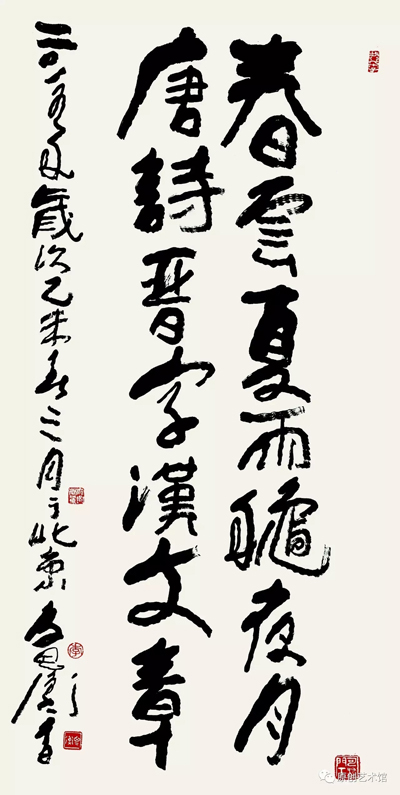 春雲夏雨穐夜月
唐詩晉字漢文章
二〇一五年歲次乙未春三月于北京
艺术馆